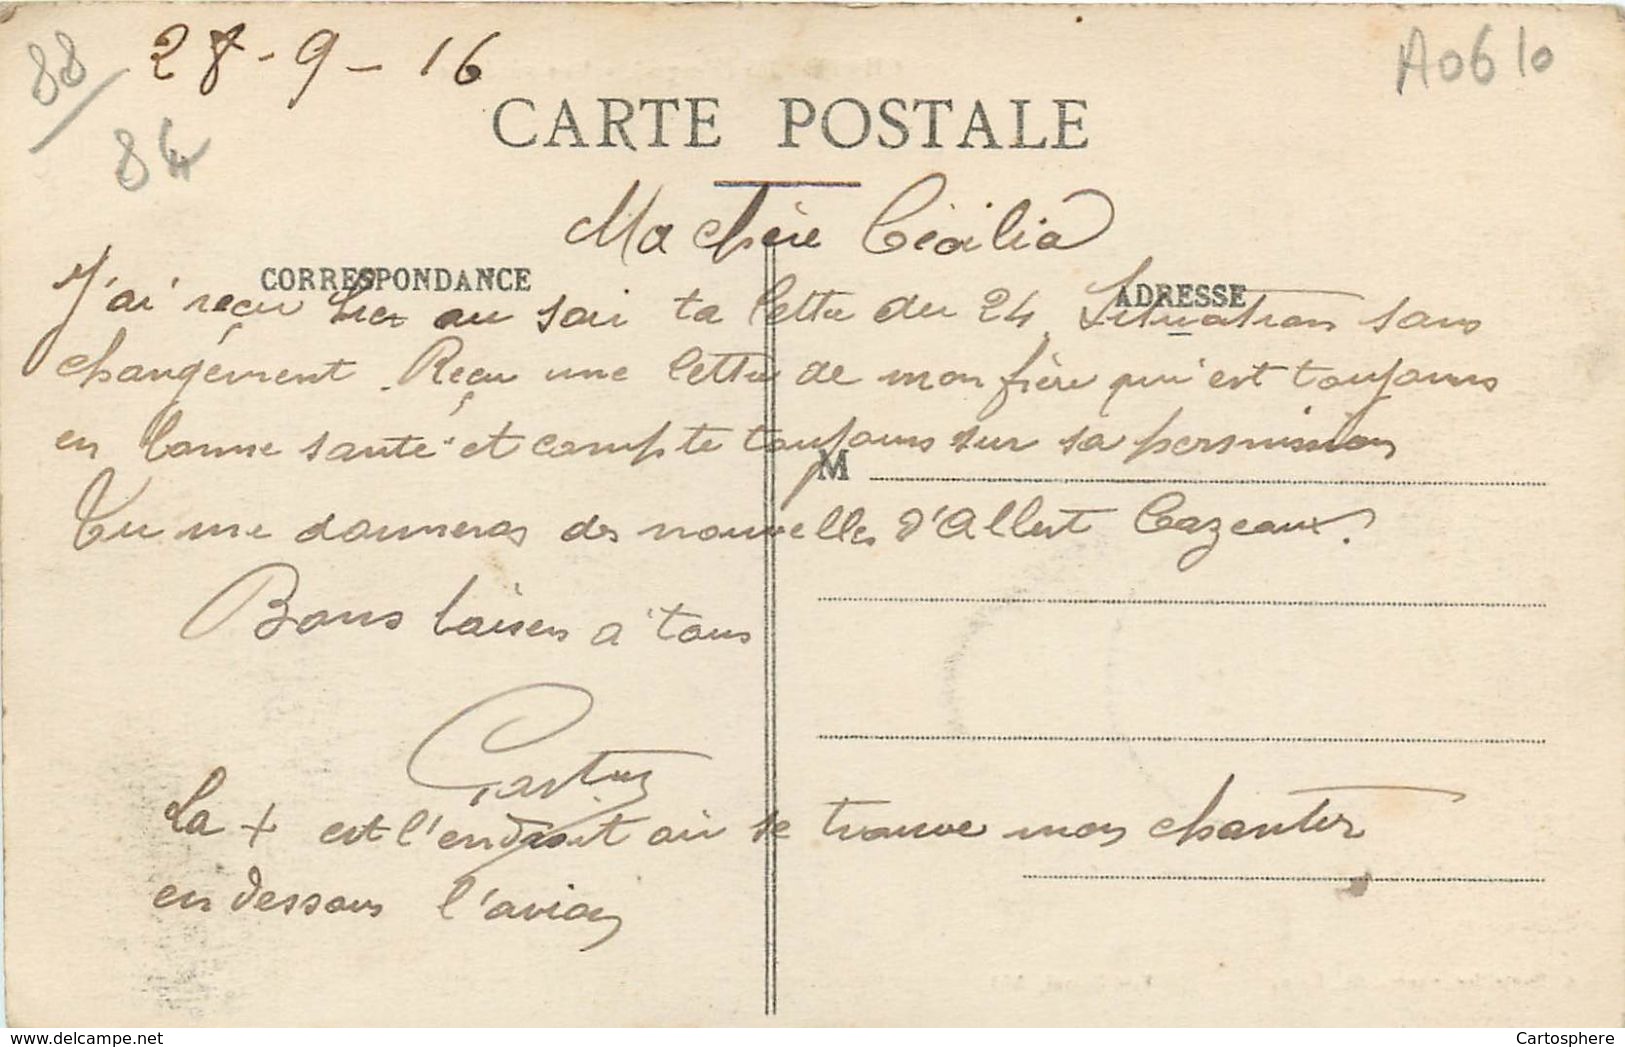 88
84
28-9-16
A0610
CARTE POSTALE
Ma chère Cécilia
CORRESPONDANCE
ADRESSE
J'ai reçu hier au soir ta lettre du 24. Situation sans
changement. Reçu une lettre de mon frère qui est toujours
en bonne santé et compte toujours sur sa permission
M
Tu me donneras des nouvelles d'Albert Cazeaux.
Bons baisers à tous
La + est l'endroit où se trouve mon chantier
en dessous l'avion
www.delcampe.net
Cartosphere